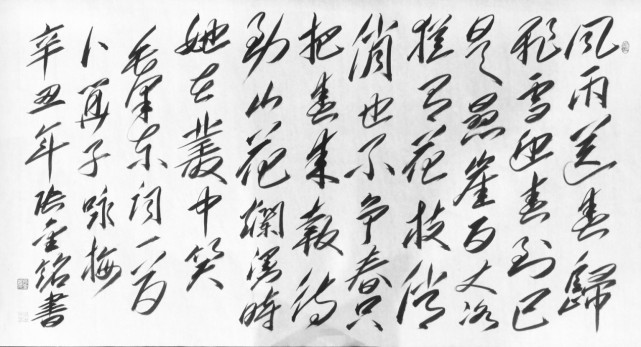 风雨送春歸
飛雪迎春到已
是悬崖百丈冰
猶有花枝俏
俏也不争春只
把春来報待
到山花爛漫時
她在叢中笑
毛澤东词一首
卜算子咏梅
辛丑年金铭書